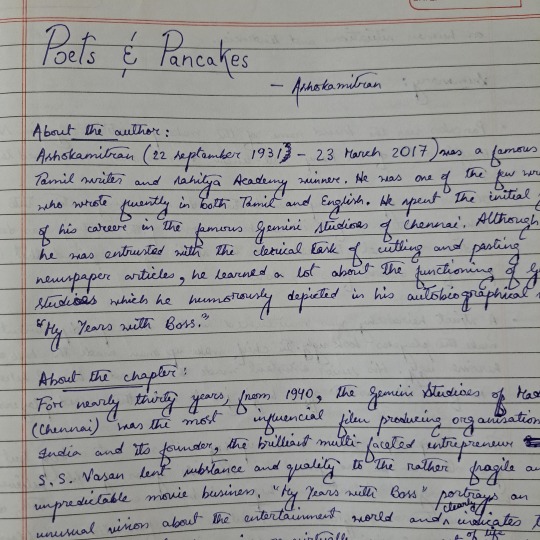 Poets & Pancakes
- Ashokamitran
About the author:
Ashokamitran (22 September 1931 - 23 March 2017) was a famous
Tamil writer and Sahitya Academy winner. He was one of the few
who wrote fluently in both Tamil and English. He spent the initial
of his career in the famous Gemini Studioes of Chennai. Although
he was entrusted with the clerical task of cutting and pasting
newspaper articles, he learned a lot about the functioning of
studioes which he humorously depicted in his autobiographical
"My Years with Boss."
About the chapter:
For nearly thirty years, from 1940, the Gemini Studioes of
(Chennai) was the most influencial film producing organisation
India and its founder, the brilliant multi-faceted entrepreneur
S.S. Vasan lent substance and quality to the rather fragile
unpredictable movie business. "My Years with Boss" portrays an
unusual vision about the entertainment world and clearly indicates
of life
virtually